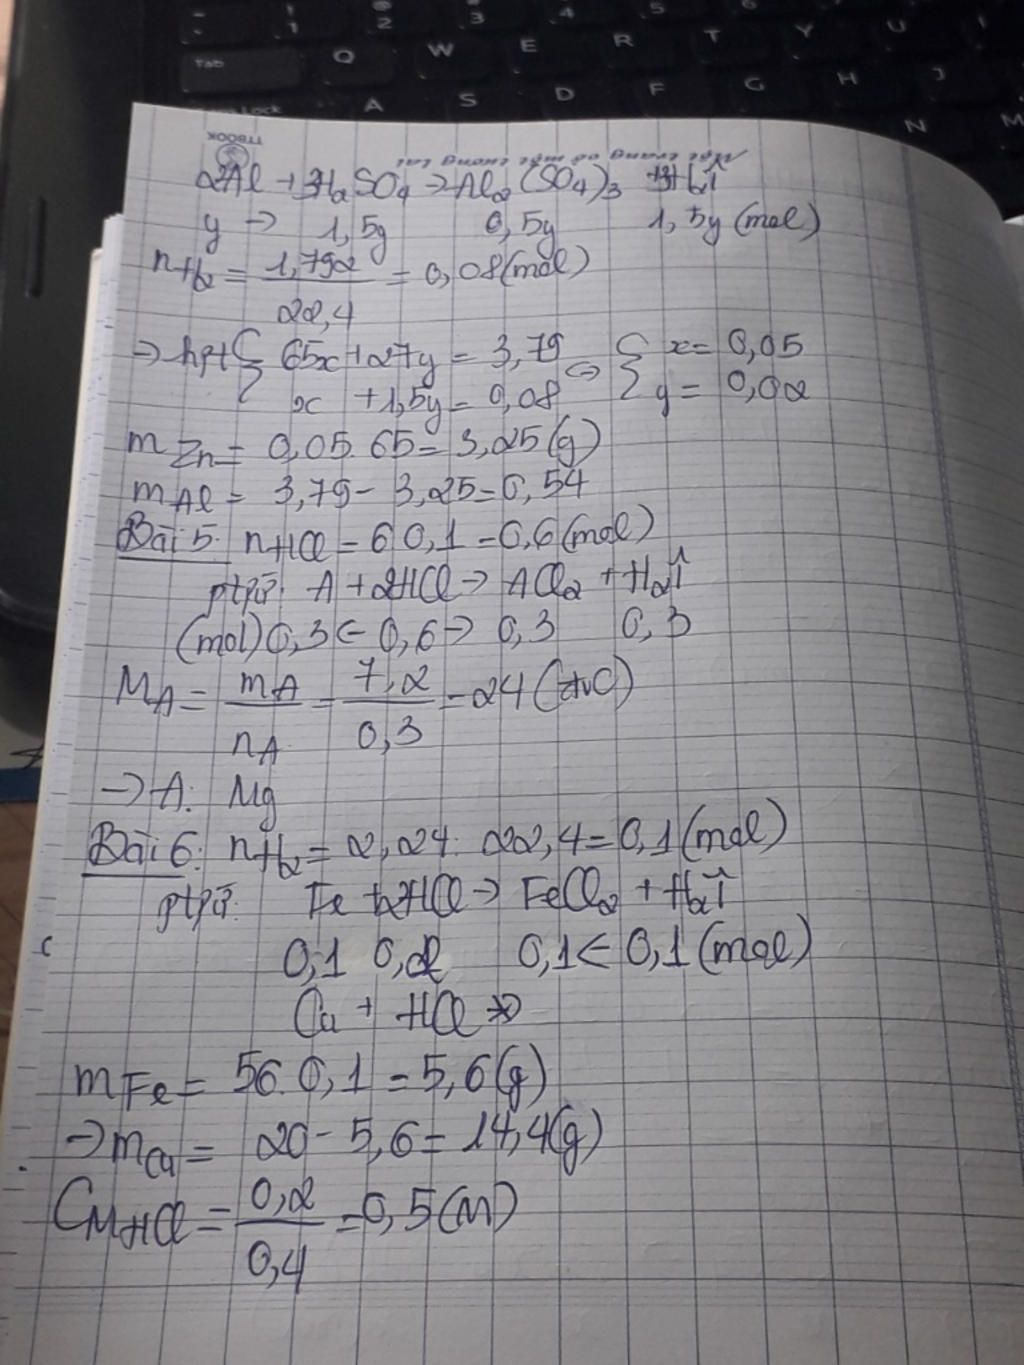 2Al + 3H₂SO₄ → Al₂(SO₄)₃ + 3H₂↑
y → 1,5y 0,5y 1,5y (mol)
nH₂ = 1,792/22,4 = 0,08 (mol)
→ hpt { 65x + 27y = 3,79 ⇔ { x = 0,05
x + 1,5y = 0,08 y = 0,02
mZn = 0,05. 65 = 3,25 (g)
mAl = 3,79 - 3,25 = 0,54
Bài 5: nHCl = 6 0,1 = 0,6 (mol)
ptpứ: A + 2HCl → ACl₂ + H₂↑
(mol) 0,3 ← 0,6 → 0,3 0,3
MA = mA/nA = 7,2/0,3 = 24 (đvC)
→ A: Mg
Bài 6: nH₂ = 2,24: 22,4 = 0,1 (mol)
ptpứ: Fe + 2HCl → FeCl₂ + H₂↑
0,1 0,2 0,1 ← 0,1 (mol)
Cu + HCl ↛
mFe = 56. 0,1 = 5,6 (g)
→ mCu = 20 - 5,6 = 14,4 (g)
CM HCl = 0,2/0,4 = 0,5 (M)
Tab
Q W E R T Y U I
A S D F G H J
N M